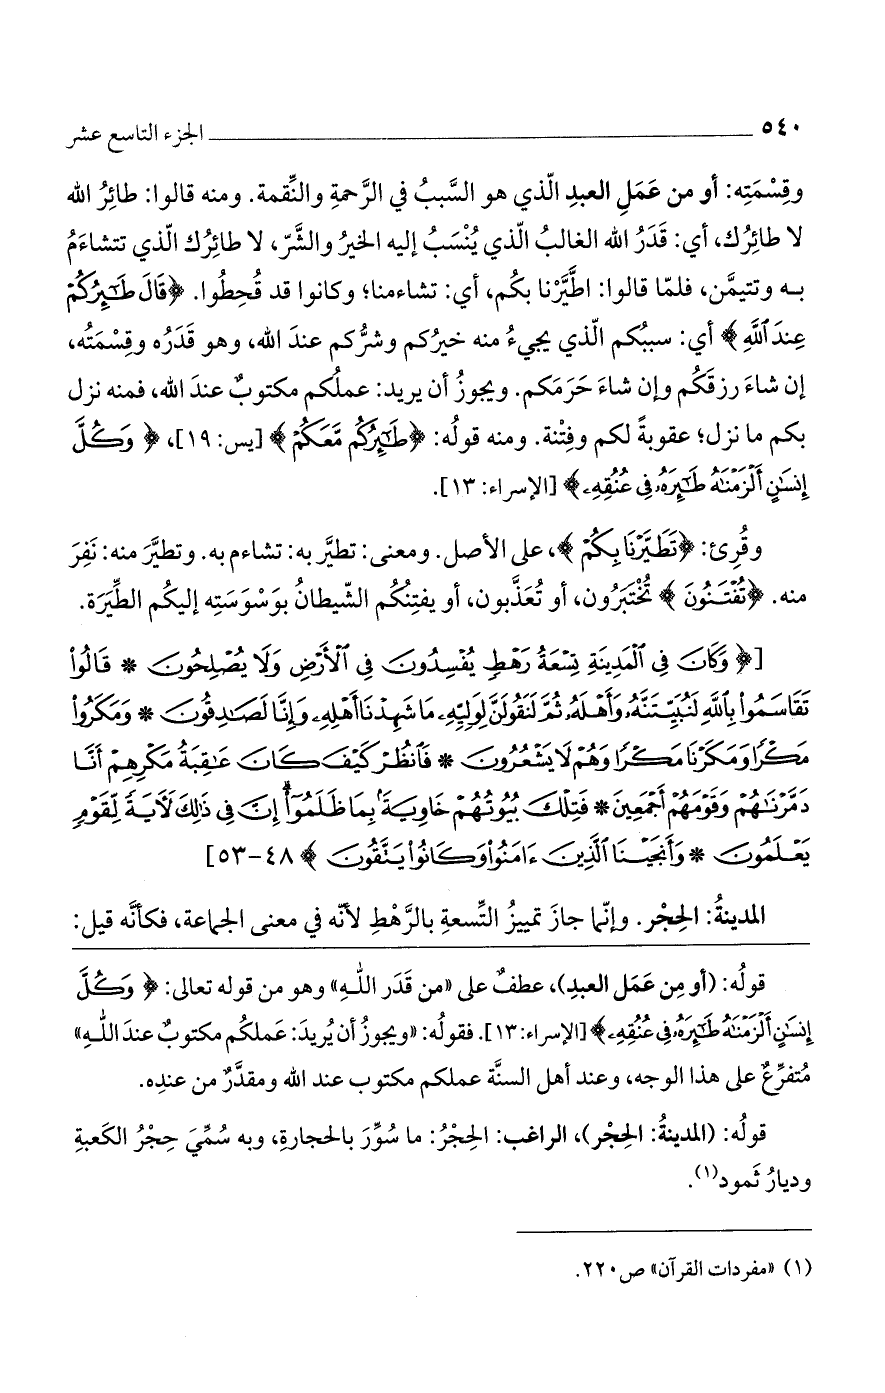 ٥٤٠ الجزء التاسع عشر
وقِسْمَتِه: أو من عَمَلِ العبدِ الّذي هو السَّببُ في الرَّحمةِ والنِّقمة. ومنه قالوا: طائِرُ الله
لا طائِرُك، أي: قَدَرُ الله الغالبُ الّذي يُنْسَبُ إليه الخيرُ والشَّرّ، لا طائِرُك الّذي تتشاءَمُ
بـه وتتيمَّن، فلمّا قالوا: اطَّيَّرْنا بكُم، أي: تشاءمنا؛ وكانوا قد قُحِطُوا. ﴿قَالَ طَـٰٓئِرُكُمْ
عِندَ ٱللَّهِ﴾ أي: سببُكم الّذي يجيءُ منه خيرُكم وشرُّكم عندَ الله، وهو قَدَرُه وقِسْمَتُه،
إن شاءَ رزقَكُم وإن شاءَ حَرَمَكم. ويجوزُ أن يريد: عملُكم مكتوبٌ عندَ الله، فمنه نزل
بكم ما نزل؛ عقوبةً لكم وفِتْنة. ومنه قولُه: ﴿طَـٰٓئِرُكُم مَّعَكُمْ﴾ [يس: ١٩]، ﴿ وَكُلَّ
إِنسَـٰنٍ أَلْزَمْنَـٰهُ طَـٰٓئِرَهُۥ فِى عُنُقِهِۦ﴾ [الإسراء: ١٣].
وقُرِئ: ﴿تَطَيَّرْنَا بِكُمْ﴾، على الأصل. ومعنى: تطيَّر به: تشاءم به. وتطيَّرَ منه: نَفِرَ
منه. ﴿تُفْتَنُونَ﴾ تُخْتَبَرُون، أو تُعَذَّبون، أو يفتِنُكُم الشّيطانُ بوَسْوَسَتِه إليكُم الطِّيَرَة.
[﴿وَكَانَ فِى ٱلْمَدِينَةِ تِسْعَةُ رَهْطٍ يُفْسِدُونَ فِى ٱلْأَرْضِ وَلَا يُصْلِحُونَ * قَالُوا۟
تَقَاسَمُوا۟ بِٱللَّهِ لَنُبَيِّتَنَّهُۥ وَأَهْلَهُۥ ثُمَّ لَنَقُولَنَّ لِوَلِيِّهِۦ مَا شَهِدْنَا مَهْلِكَ أَهْلِهِۦ وَإِنَّا لَصَـٰدِقُونَ * وَمَكَرُوا۟
مَكْرًا وَمَكَرْنَا مَكْرًا وَهُمْ لَا يَشْعُرُونَ * فَٱنظُرْ كَيْفَ كَانَ عَـٰقِبَةُ مَكْرِهِمْ أَنَّا
دَمَّرْنَـٰهُمْ وَقَوْمَهُمْ أَجْمَعِينَ * فَتِلْكَ بُيُوتُهُمْ خَاوِيَةًۢ بِمَا ظَلَمُوٓا۟ۗ إِنَّ فِى ذَٰلِكَ لَـَٔايَةً لِّقَوْمٍ
يَعْلَمُونَ * وَأَنجَيْنَا ٱلَّذِينَ ءَامَنُوا۟ وَكَانُوا۟ يَتَّقُونَ﴾ ٤٨-٥٣]
المدينةُ: الحِجْر. وإنّما جازَ تمييزُ التِّسعةِ بالرَّهْطِ لأنّه في معنى الجماعة، فكأنَّه قيل:
قولُه: (أو مِن عَمَل العبدِ)، عطفٌ على «من قَدَر اللهِ» وهو من قوله تعالى: ﴿ وَكُلَّ
إِنسَـٰنٍ أَلْزَمْنَـٰهُ طَـٰٓئِرَهُۥ فِى عُنُقِهِۦ﴾ [الإسراء: ١٣]. فقولُه: «ويجوزُ أن يُريدَ: عَملكُم مكتوبٌ عندَ اللهِ»
مُتفرِّعٌ على هذا الوجه، وعند أهل السنَّة عملكم مكتوب عند الله ومقدَّرٌ من عندِه.
قولُه: (المدينةُ: الحِجْر)، الراغب: الحِجْرُ: ما سُوِّرَ بالحجارةِ، وبه سُمِّيَ حِجْرُ الكَعبةِ
وديارُ ثَمود(١).
(١) «مفردات القرآن» ص٢٢٠.